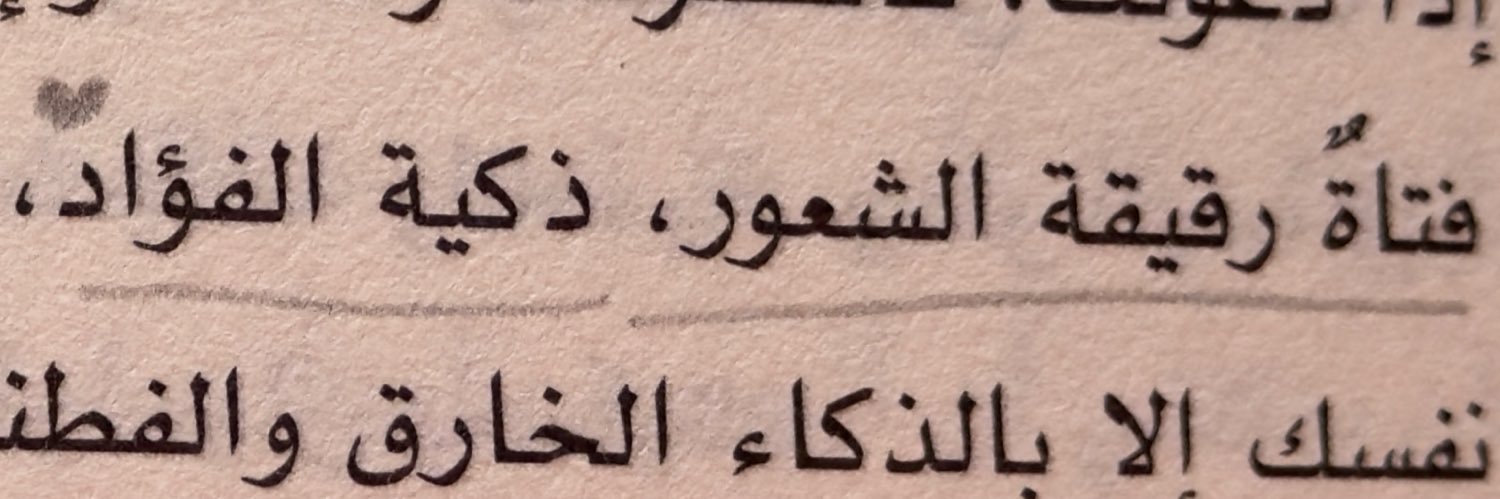 إذا
فتاةٌ رقيقة الشعور، ذكية الفؤاد،
نفسك إلا بالذكاء الخارق والفطنـ